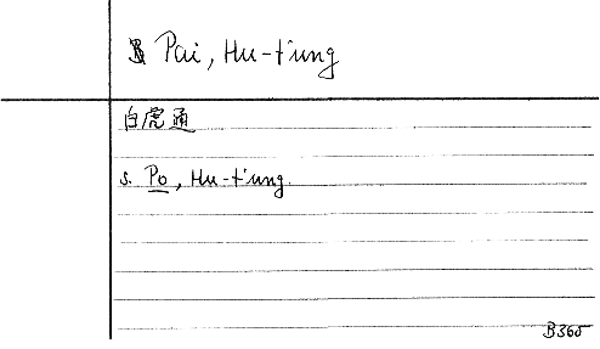 Pai, Hu-t'ung
白虎通
s. Po, Hu-t'ung.
B365